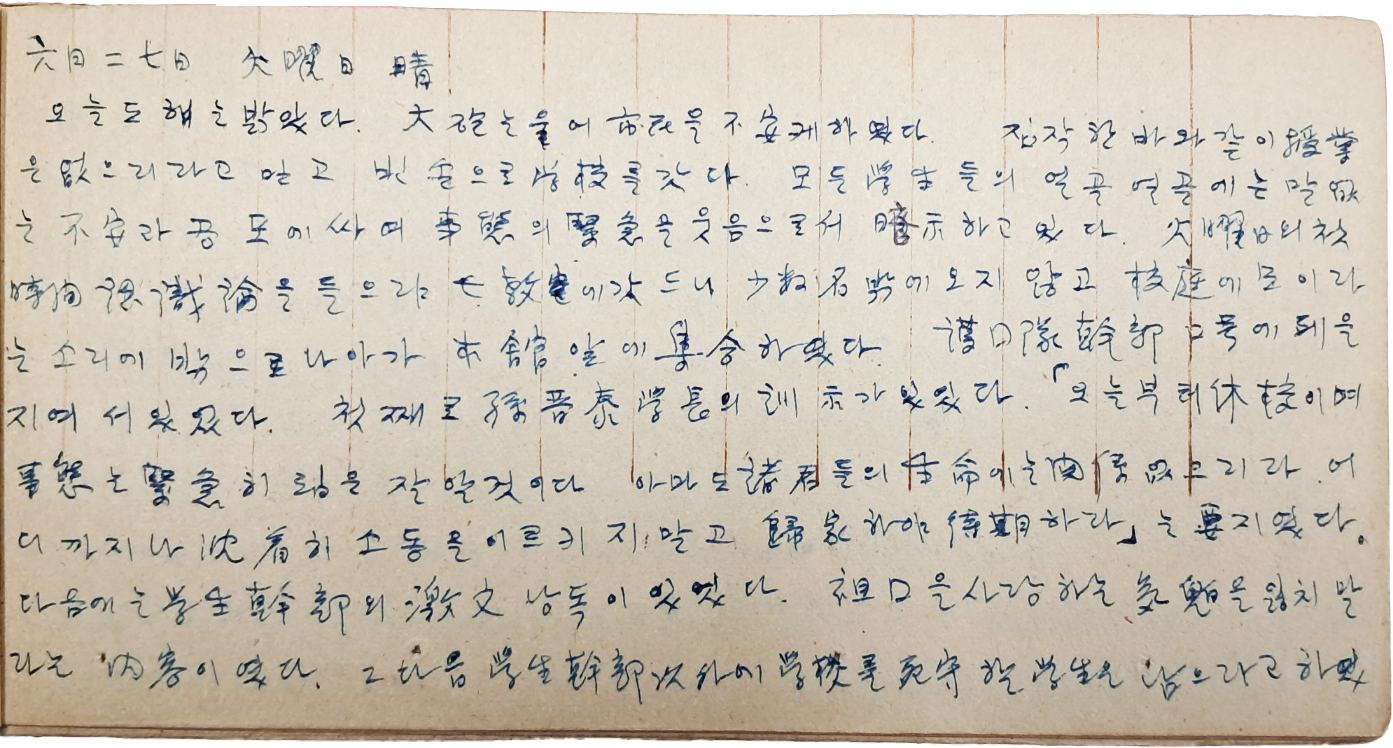 六月二七日 火曜日 晴
오늘도 해는 밝았다. 大砲는 울어 市民을 不安케 하였다. 짐작한 바와 같이 授業
은 없으리라고 믿고 빈손으로 学校를 갓다. 모든 学生들의 얼골 얼골에는 말없
는 不安과 공포에 싸여 事態의 緊急을 웃음으로서 暗示하고 있다. 火曜日의 첫
時間 認識論을 들으랴 七教室에 갓드니 少数名 밖에 오지 않고 校庭에 모이라
는 소리에 밖으로 나아가 本館 앞에 集合하였다. 護口隊 幹部 口号에 떼을
지여 서 있었다. 첫째로 孫晋泰 学長의 訓示가 있었다. 「오늘부터 休校이며
事態는 緊急히 됨을 잘 알것이다 아마도 諸君들의 生命에는 関係 없으리라 어
디까지나 沈着히 소동을 이르키지 말고 歸家하야 待期하라」는 要지였다.
다음에는 学生幹部의 激文 낭독이 있었다. 祖口을 사랑하는 을 잃치 말
라는 内容이였다. 그 다음 学生幹部 以外에 学校를 死守할 学生은 남으라고 하였